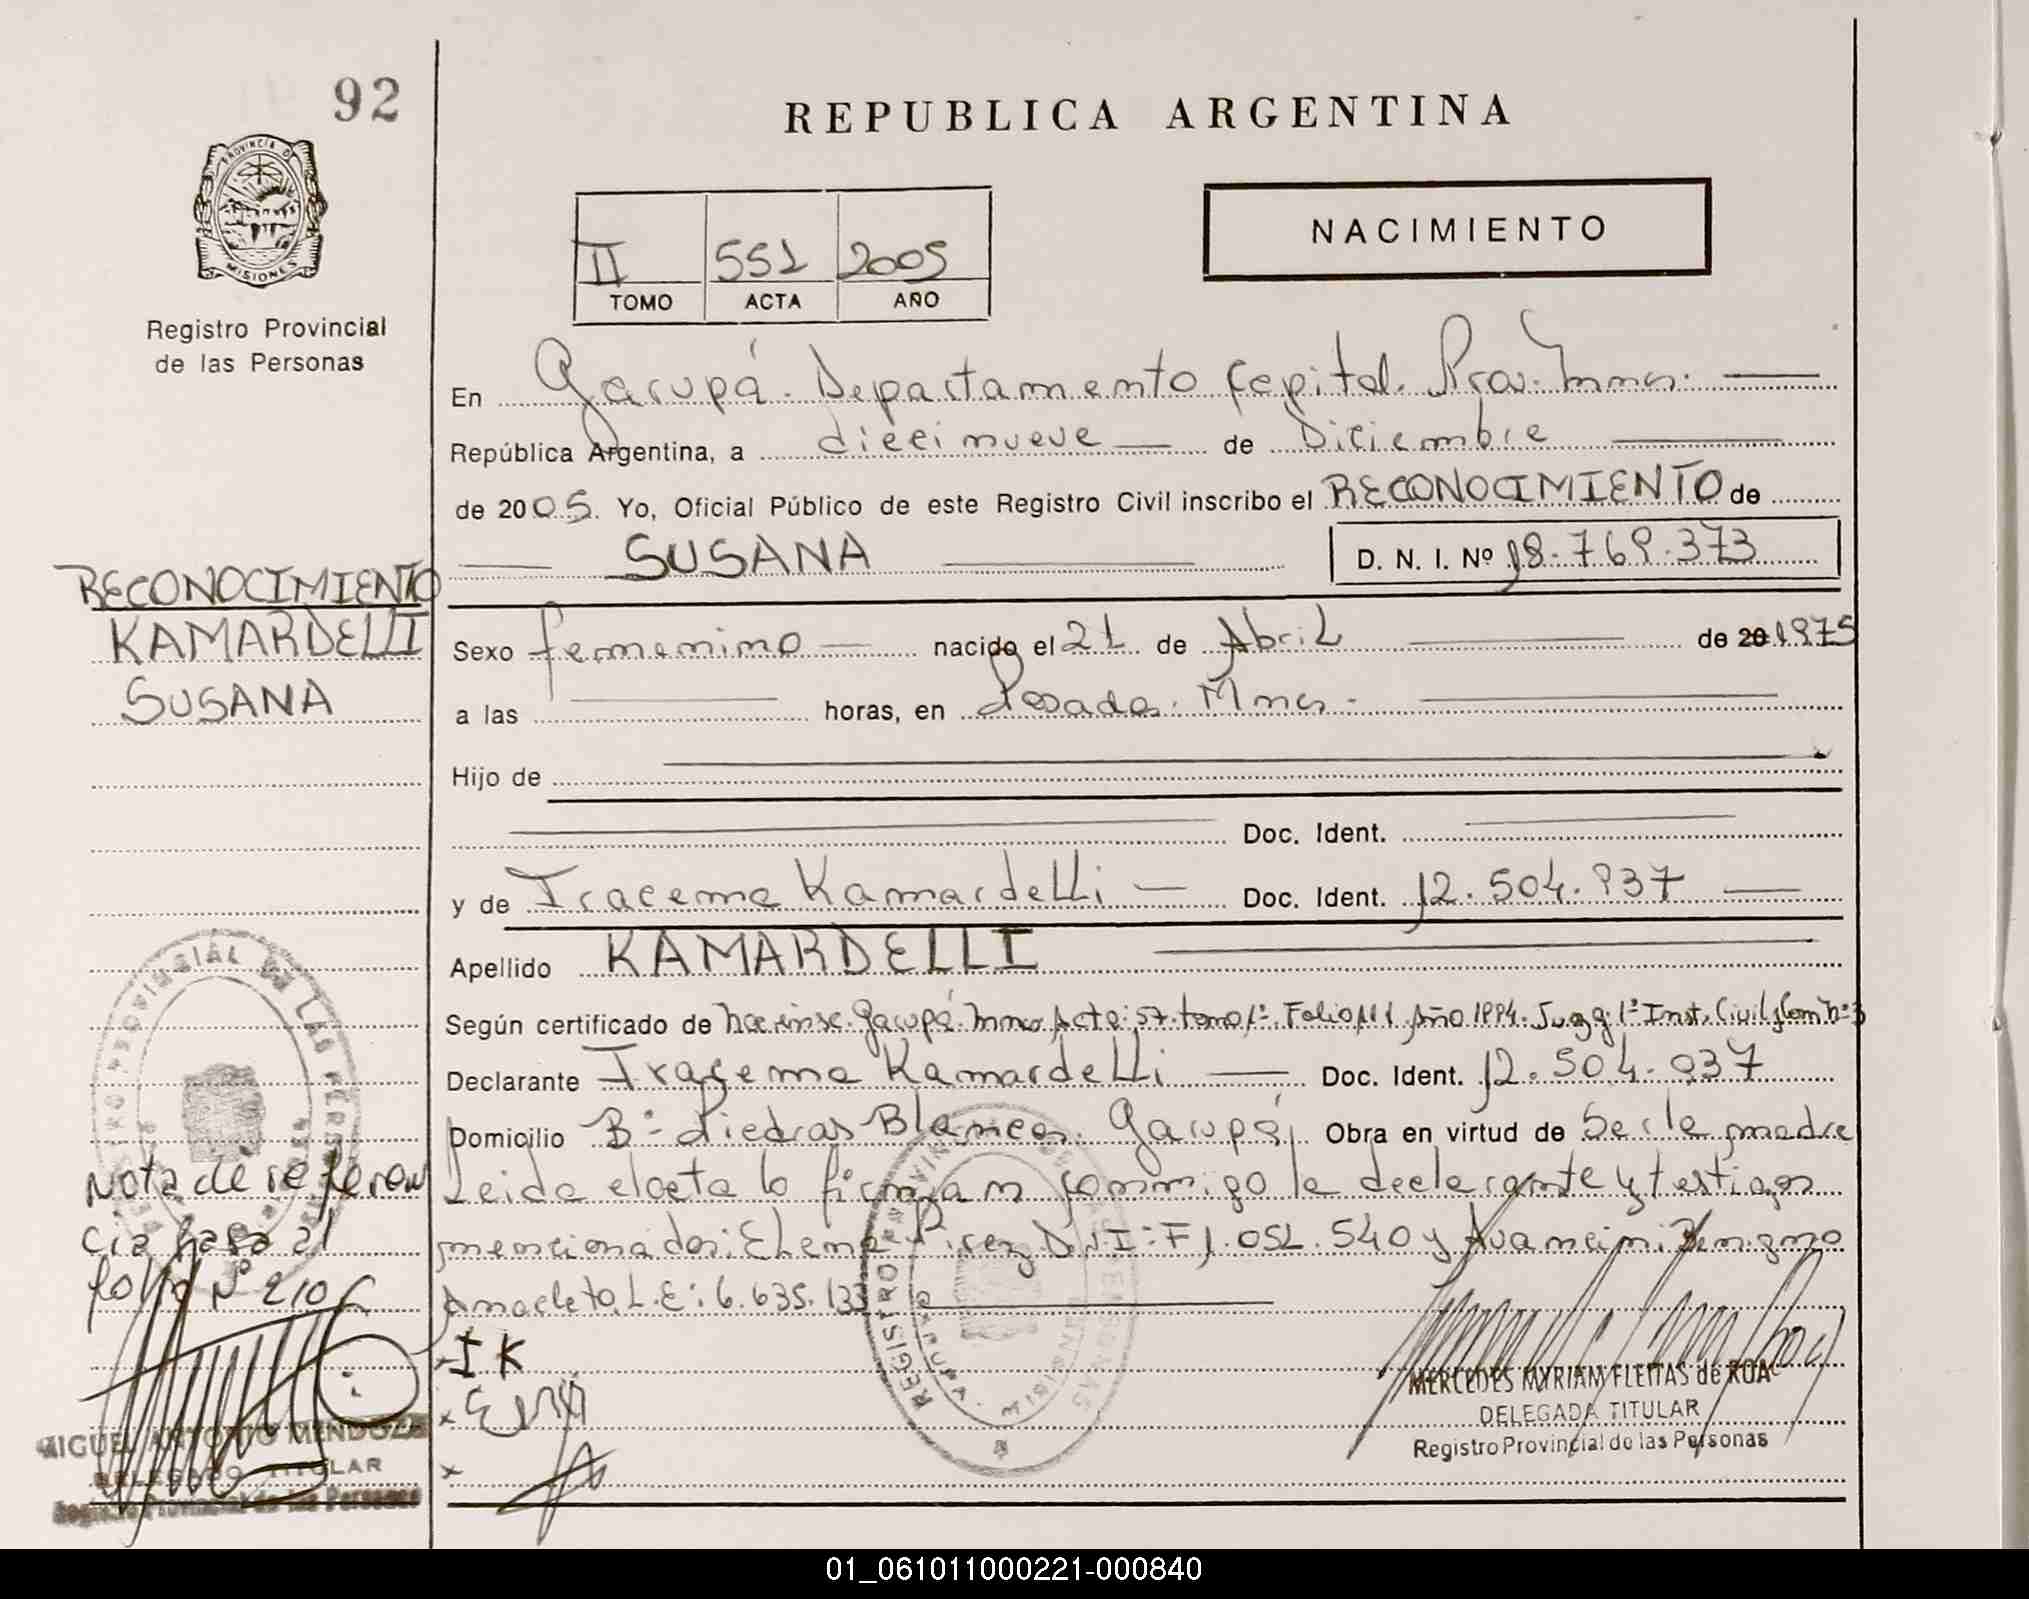 92
REPUBLICA ARGENTINA
PROVINCIA D MISIONES
Registro Provincial
de las Personas
II 551 2005
TOMO ACTA AÑO
NACIMIENTO
En Garupá. Departamento Capital. Prov. Mnes.
República Argentina, a diecinueve de Diciembre
de 2005. Yo, Oficial Público de este Registro Civil inscribo el RECONOCIMIENTO de
SUSANA D. N. I. Nº 18.769.373
RECONOCIMIENTO
KAMARDELLI
SUSANA
Sexo femenino nacido el 21 de Abril de 20 1975
a las horas, en Posadas. Mnes.
Hijo de
Doc. Ident.
y de Iracema Kamardelli Doc. Ident. 12.504.937
Apellido KAMARDELLI
Según certificado de Garupá. Mnes Acta: 57. tomo 1º. Folio Año 1994. Juzg. 1ª Inst. Civil y Com nº 3
Declarante Iracema Kamardelli Doc. Ident. 12.504.937
Domicilio Bº Piedras Blancas. Garupá. Obra en virtud de Ser la madre
Leida el acta la firman conmigo la declarante y testigos
mencionados: Elena Pirez D.N.I: F 1.052.540 y Benigno
Anacleto. L.E: 6.635.133
Nota de referen
cia pasa al
folio Nº 210
I K
MIGUEL ANTONIO MENDOZA
DELEGADO TITULAR
Registro Provincial de las Personas
MERCEDES MYRIAM FLEITAS de ROA
DELEGADA TITULAR
Registro Provincial de las Personas
01_061011000221-000840